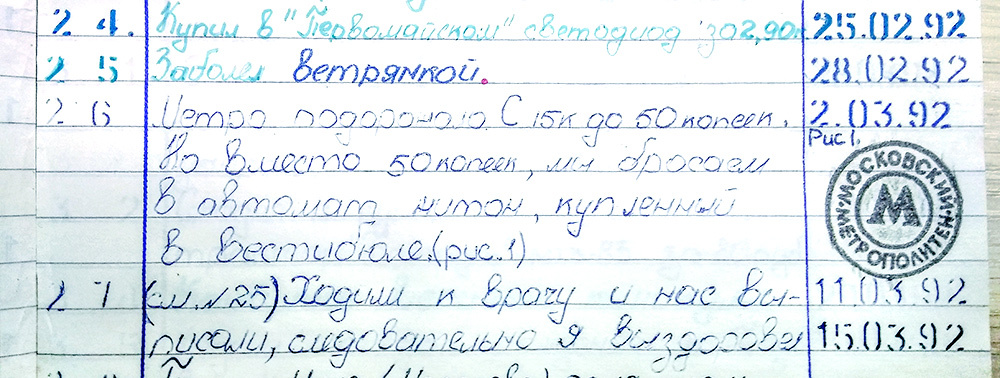 24. Купил в "Первомайском" светодиод за 2,90к 25.02.92
25 Заболел ветрянкой. 28.02.92
26 Метро подорожало С 15к до 50 копеек. 2.03.92
Но вместо 50 копеек, мы бросаем Рис 1.
в автомат житон, купленный
в вестибюле.(рис.1)
МОСКОВСКИЙ МЕТРОПОЛИТЕН М
27 (см. №25) Ходили к врачу и нас вы- 11.03.92
писали, следовательно я выздоровел 15.03.92